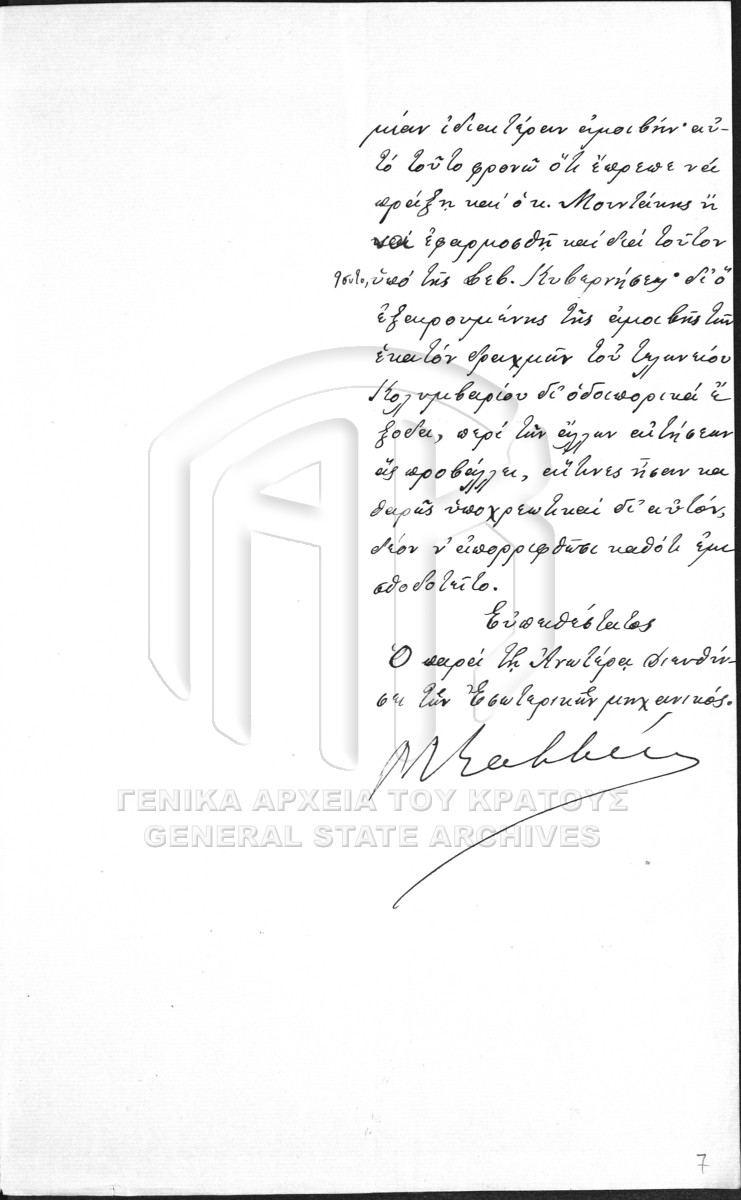 μίαν ἰδιαιτέραν ἀμοιβήν· αὐ-
τό τοῦτο φρονῶ ὅτι ἔπρεπε νά
πράξῃ καί ὁ κ. Μουντάκης ἤ
νά ἐφαρμοσθῇ καί διά τοῦτον
ὑπό τῆς Σεβ. Κυβερνήσεως· δι' ὅ
ἐξαιρουμένης τῆς ἀμοιβῆς τῶν
ἑκατόν δραχμῶν τοῦ τελωνείου
Κολυμβαρίου δι' ὁδοιπορικά ἔ-
ξοδα, περί τῶν ἄλλων αἰτήσεων
ἅς προβάλλει, αἵτινες ἦσαν κα
θαρῶς ὑποχρεωτικαί δι' αὐτόν,
δέον ν' ἀπορριφθῶσι καθότι ἐμι
σθοδοτεῖτο.
Εὐπειθέστατος
Ὁ παρά τῇ Ἀνωτέρᾳ Διευθύν-
σει τῶν Ἐσωτερικῶν μηχανικός.
ΓΕΝΙΚΑ ΑΡΧΕΙΑ ΤΟΥ ΚΡΑΤΟΥΣ
GENERAL STATE ARCHIVES
7